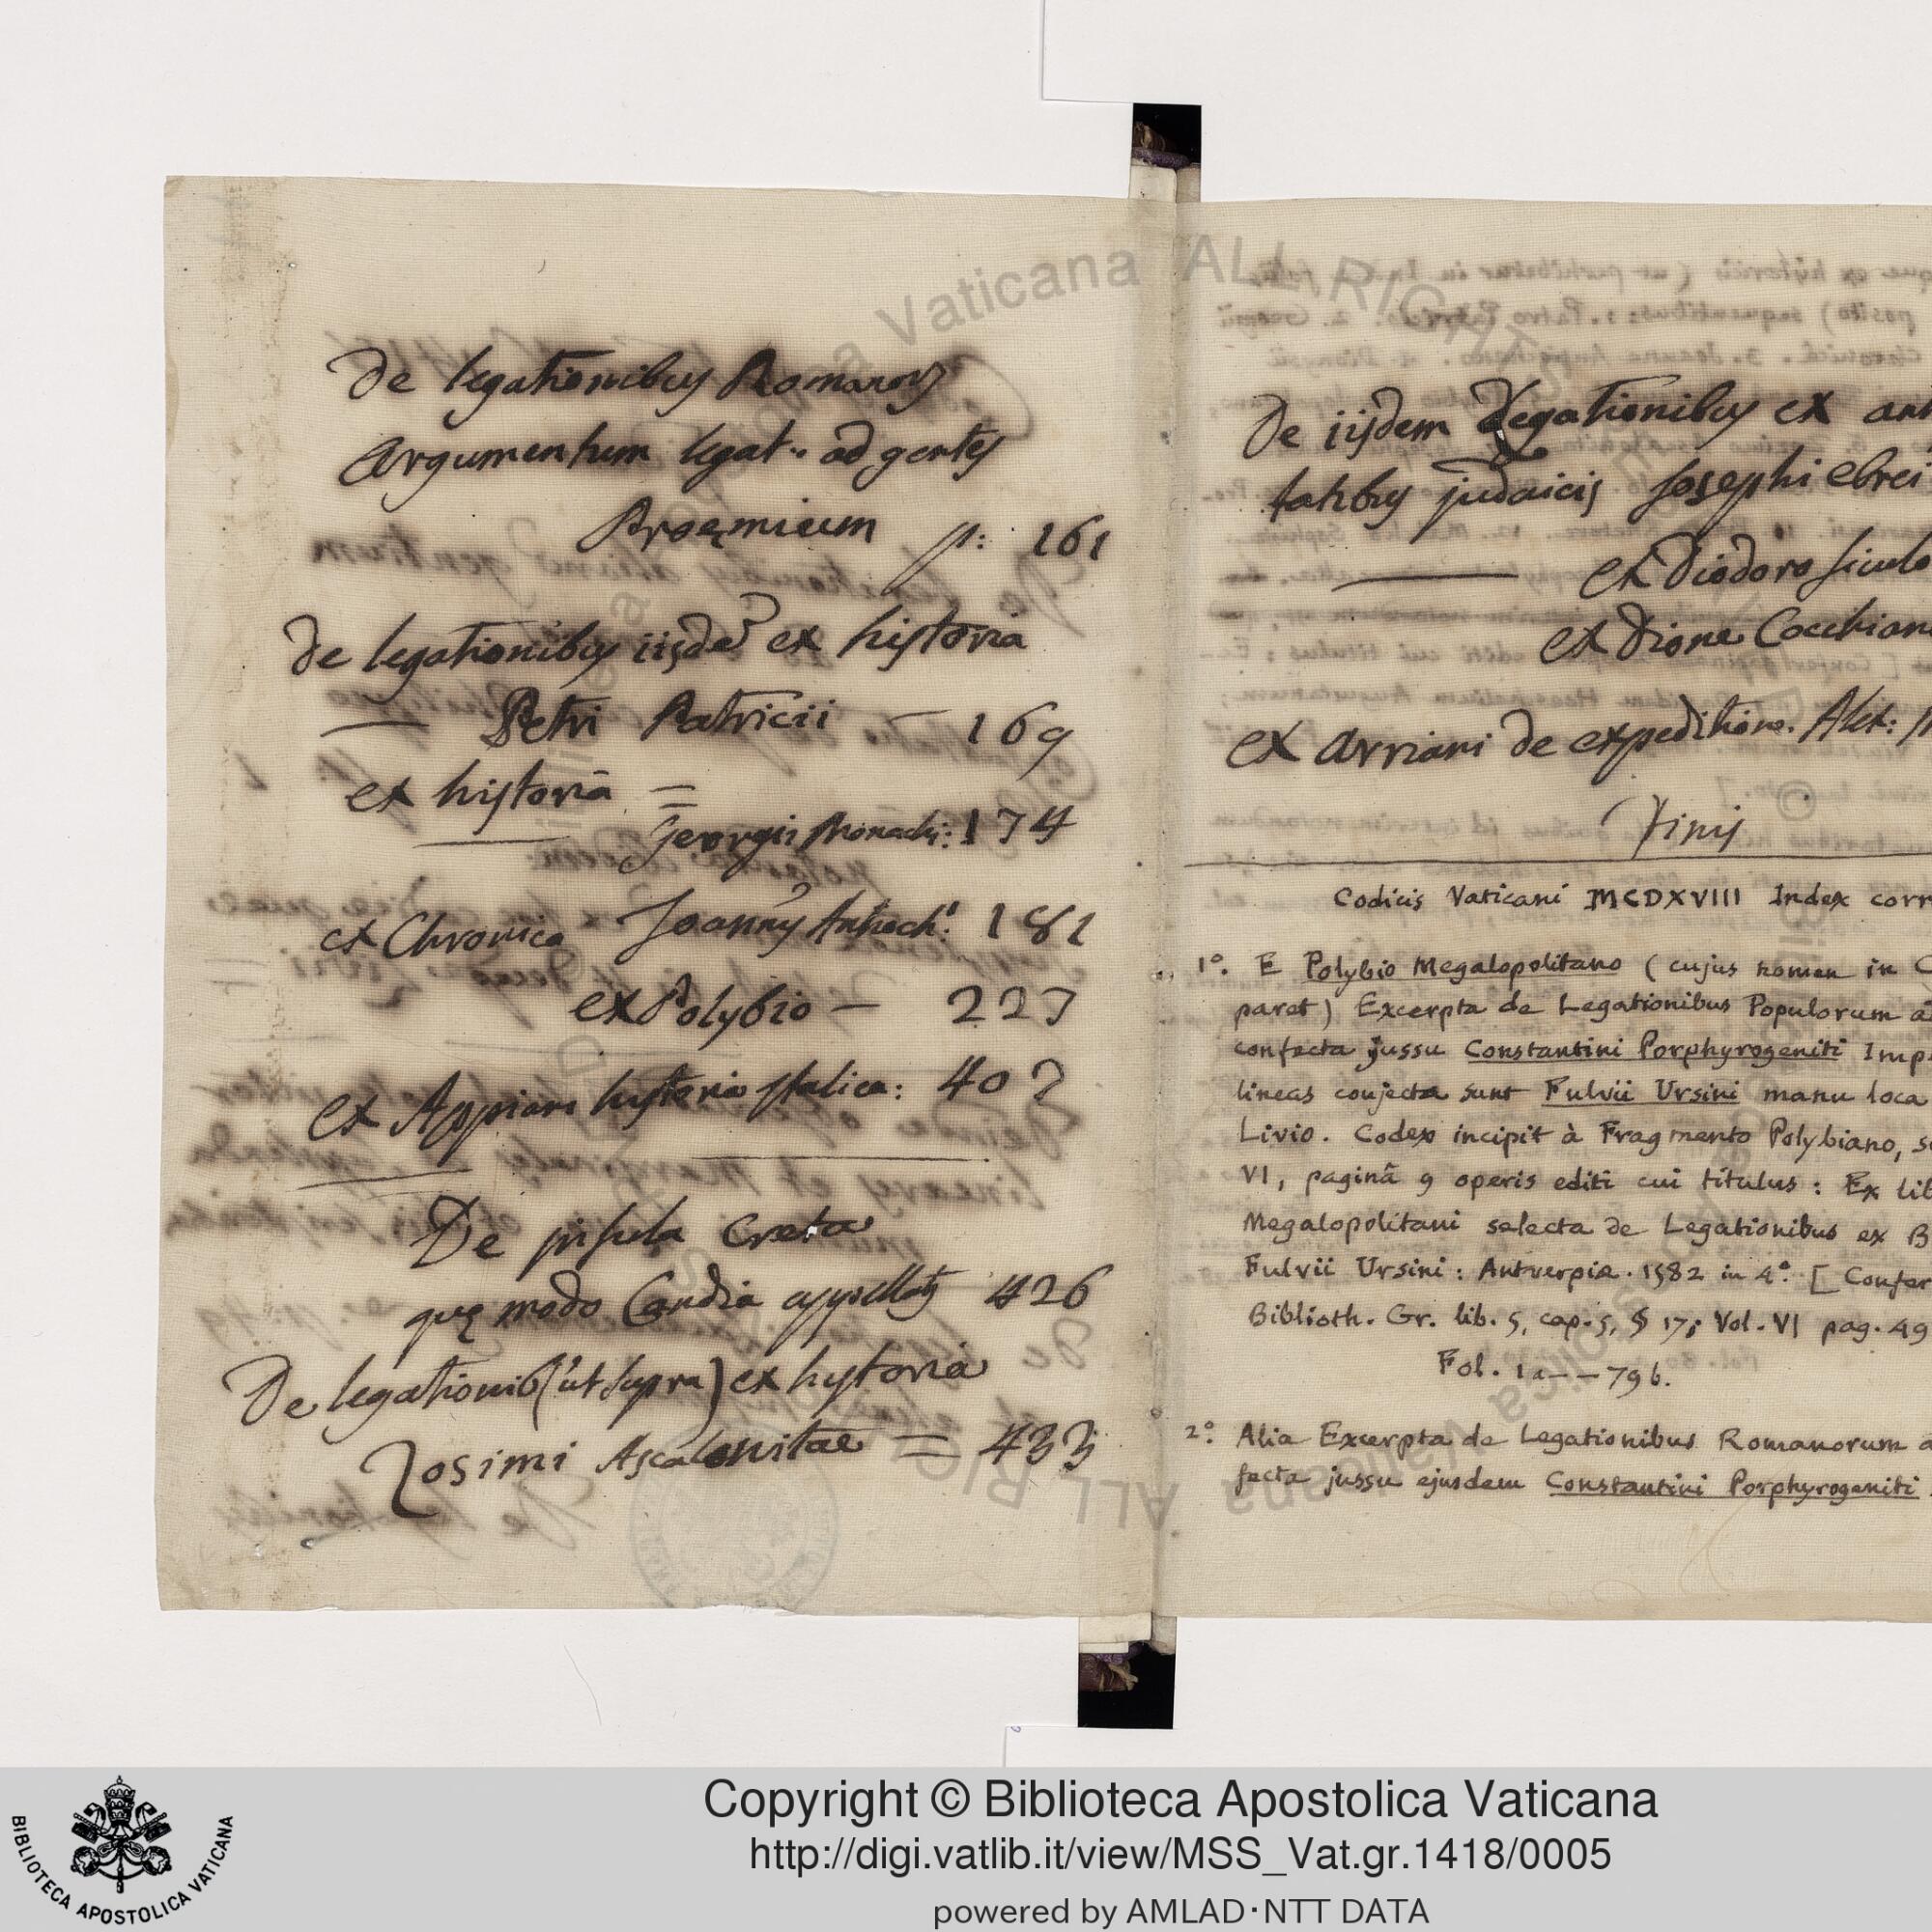 De legationibus Romanorum
Argumentum legat.. ad gentes
Proęmium p: 161
De legationibus iisde ex historia
Petri Patricii — 169
ex historiâ =
Georgii Monachi: 174
ex Chronica Joannis Antioch: 181
ex Polybio — 227
ex Appiani hystoria Italica: 407
De insula Creta
quę modo Candia appellat 426
De legationib (ut supra) ex hystoria
Zosimi Ascalonitae = 433
De iisdem Legationibus ex
judaicis Josephi Ebrei
ex Diodoro siculo
ex Dione
ex Arriani de expeditione. Alex:
Finis
Codicis Vaticani MCDXVIII Index
1º. E Polybio Megalopolitano (cujus nomen in
paret) Excerpta de Legationibus Populorum
confecta jussu Constantini Porphyrogeniti
lineas conjecta sunt Fulvii Ursini manu loca
Livio. Codex incipit à Fragmento Polybiano,
VI, paginâ 9 operis editi cui titulus: Ex
Megalopolitani selecta de Legationibus ex
Fulvii Ursini: Antverpiæ. 1582 in 4º. [
Biblioth. Gr. lib. 5, cap. 5, § 17; Vol. VI pag. 49
Fol. 1a -- 79b.
2º. Alia Excerpta de Legationibus Romanorum
fecta jussu ejusdem Constantini Porphyrogeniti
Copyright © Biblioteca Apostolica Vaticana
http://digi.vatlib.it/view/MSS_Vat.gr.1418/0005
powered by AMLAD·NTT DATA
BIBLIOTECA APOSTOLICA VATICANA